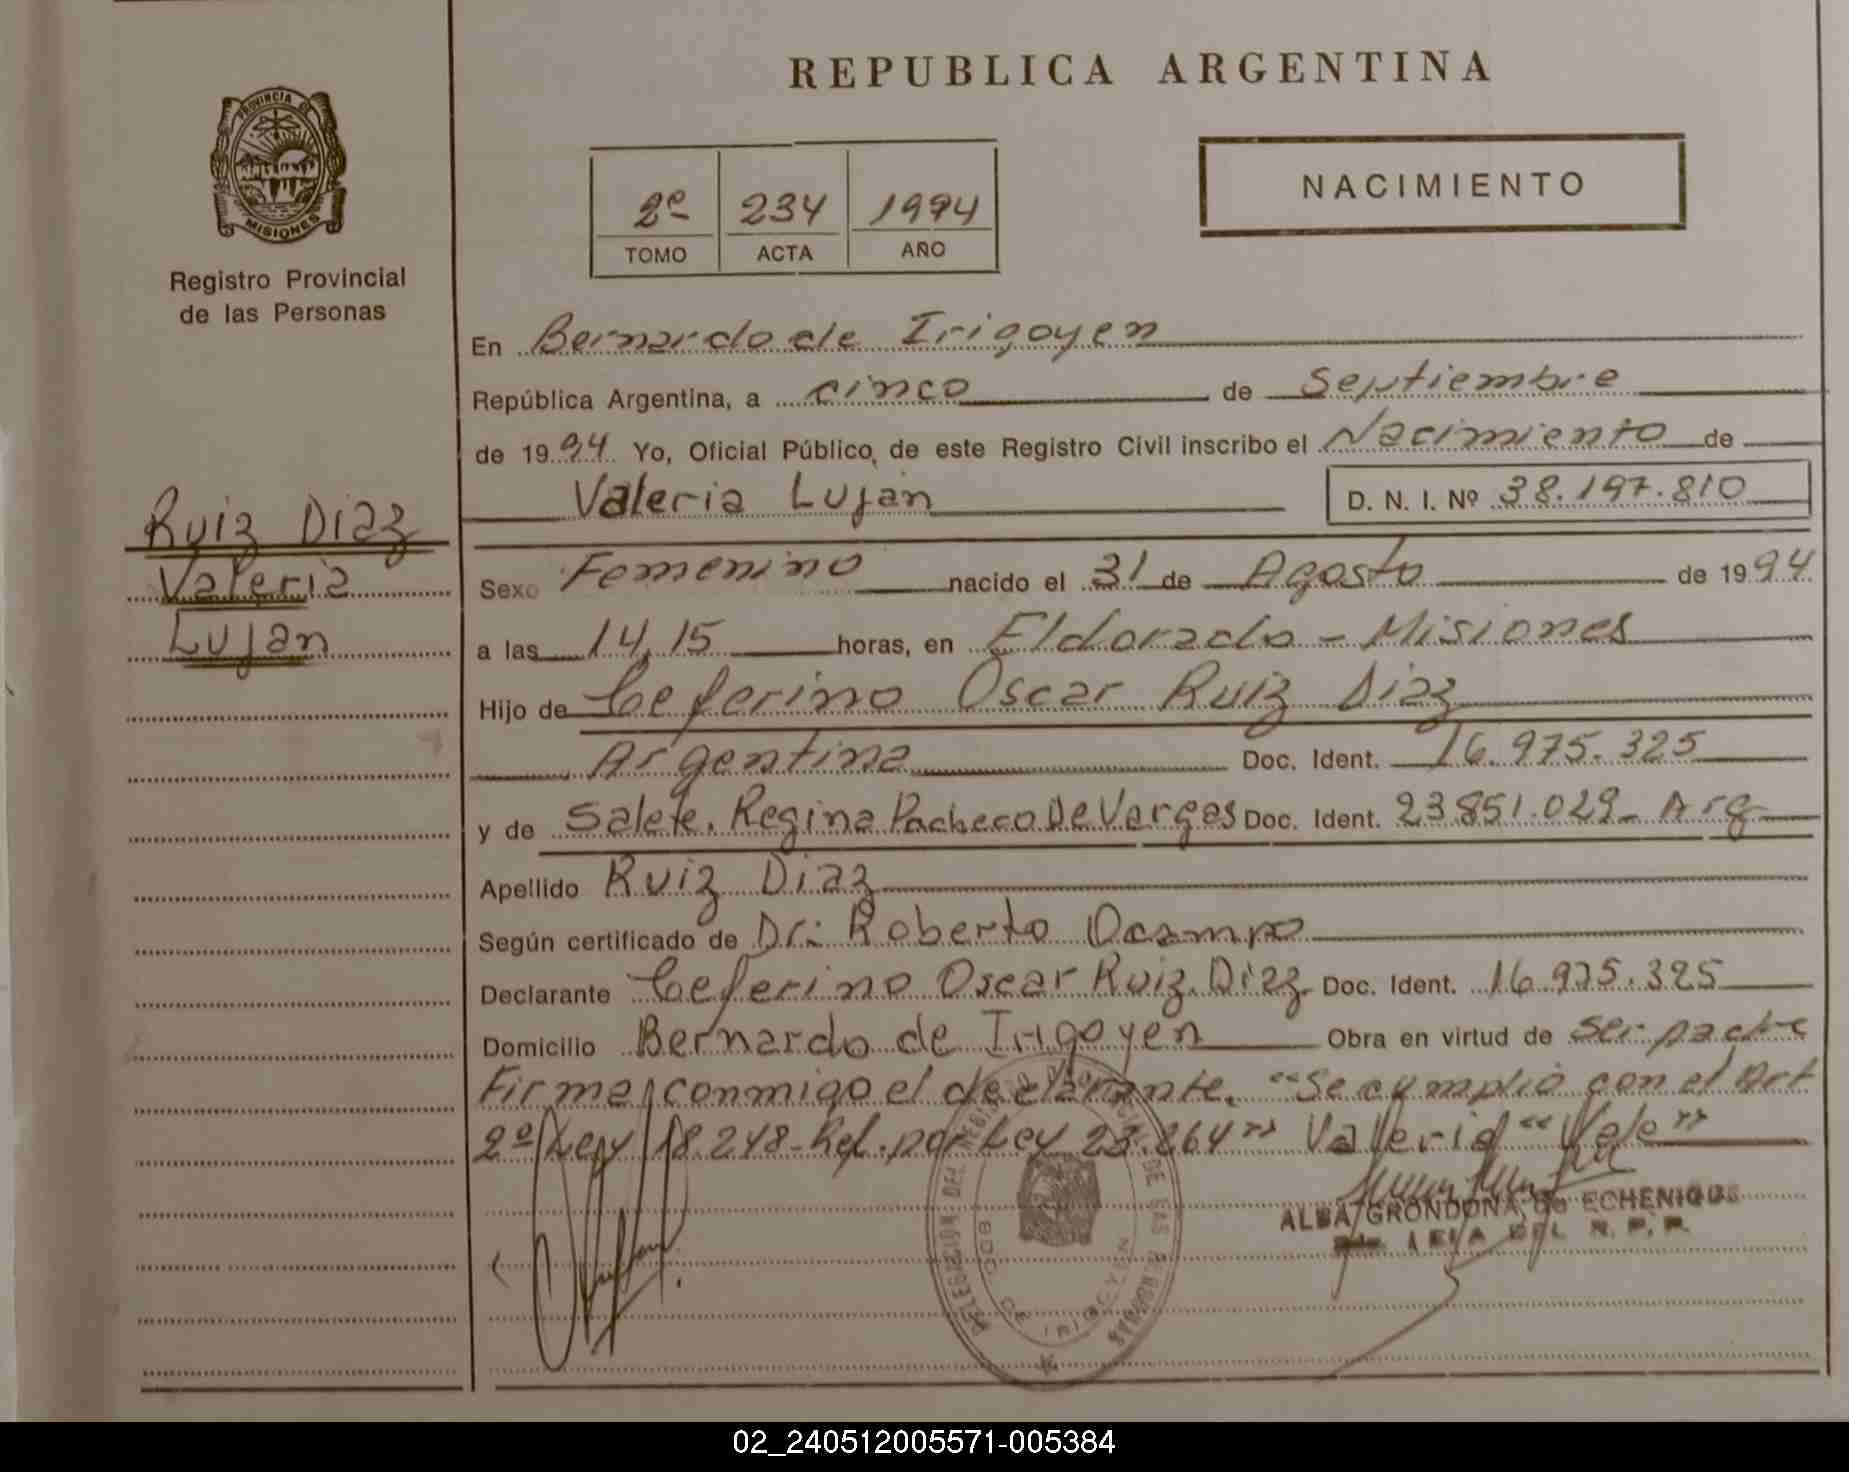 REPUBLICA ARGENTINA
PROVINCIA DE
MISIONES
Registro Provincial
de las Personas
2º 234 1994
TOMO ACTA AÑO
NACIMIENTO
En Bernardo de Irigoyen
República Argentina, a cinco de Septiembre
de 1994 Yo, Oficial Público, de este Registro Civil inscribo el Nacimiento de
Valeria Lujan D. N. I. Nº 38.197.810
Ruiz Diaz
Valeria
Lujan
Sexo Femenino nacido el 31 de Agosto de 1994
a las 14,15 horas, en Eldorado - Misiones
Hijo de Ceferino Oscar Ruiz Diaz
Argentina Doc. Ident. 16.975.325
y de Salete. Regina Pacheco De Vargas Doc. Ident. 23.851.029- Arg
Apellido Ruiz Diaz
Según certificado de Dr: Roberto Ocampo
Declarante Ceferino Oscar Ruiz Diaz Doc. Ident. 16.975.325
Domicilio Bernardo de Irigoyen Obra en virtud de ser padre
Firma conmigo el declarante. "Se cumplió con el Art
2º Ley 18.248-Ref. por Ley 23.264" Valeria "Vale"
DELEGACION DEL REGISTRO PROVINCIAL DE LAS PERSONAS
BDO. DE IRIGOYEN
ALBA GRONDONA de ECHENIQUE
DEL R. P. P.
02_240512005571-005384